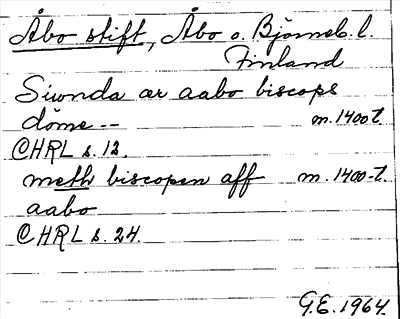 Åbo stift, Åbo o. Björneb. l.
Finland
Siunda ær aabo biscops
döme -- m. 1400 t.
CHRL s. 12.
meth biscopen aff m. 1400-t.
aabo
CHRL s. 24.
G.E. 1964.